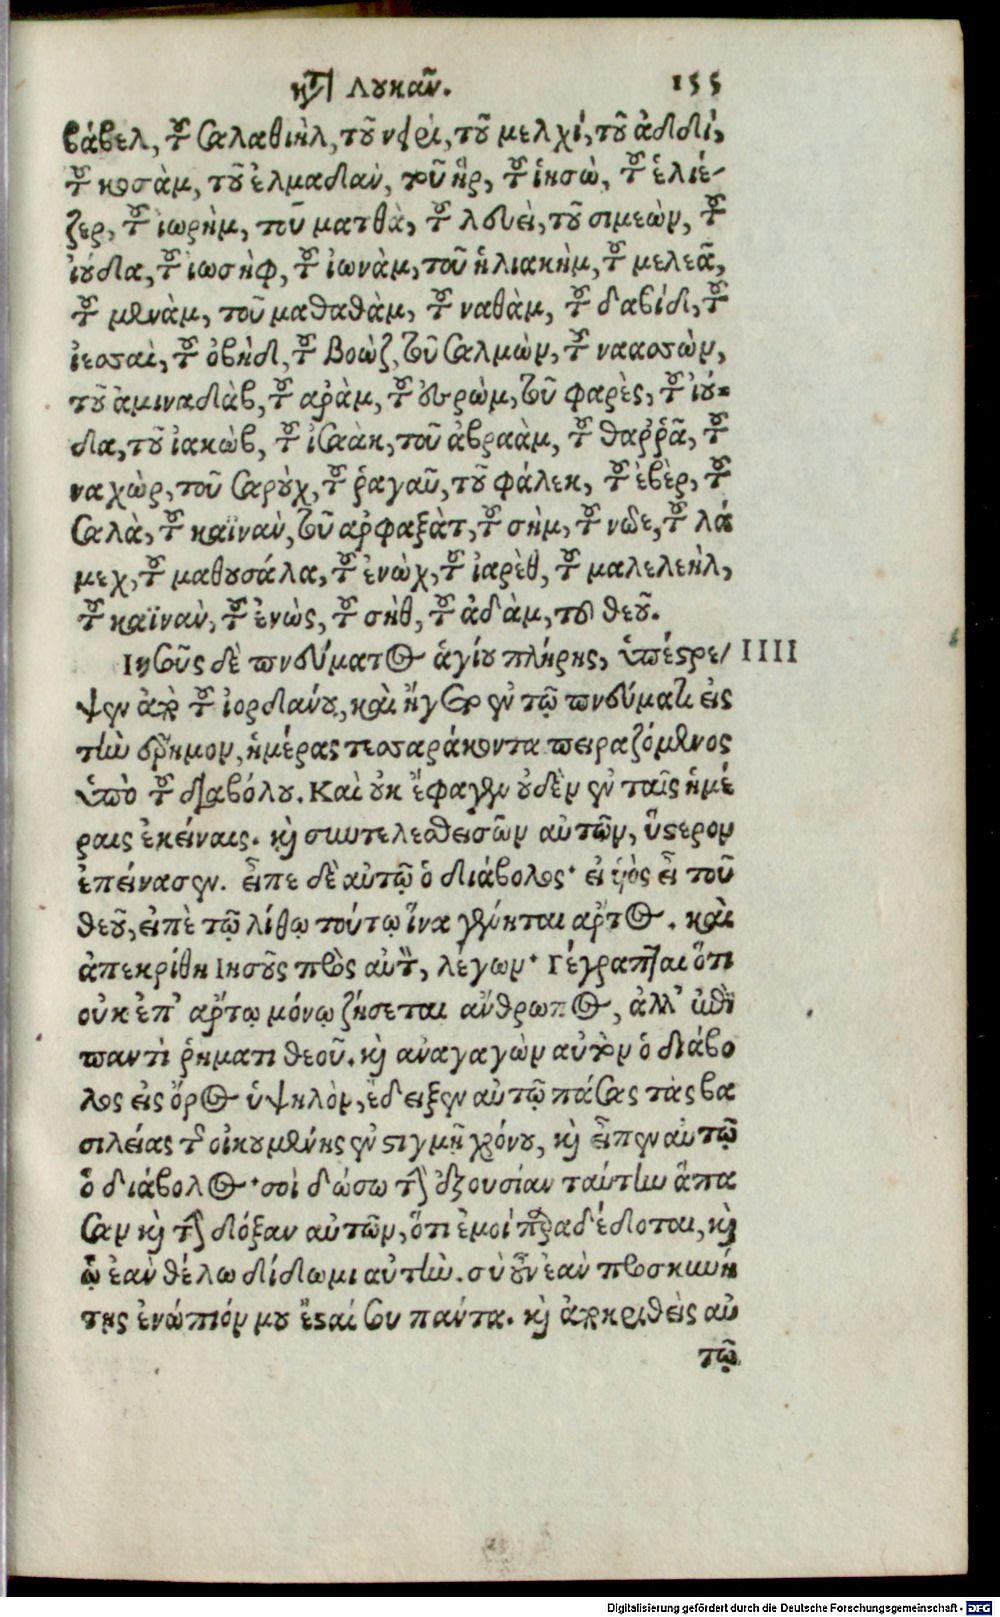 κατὰ Λουκᾶν. 155
βάβελ, τοῦ σαλαθιὴλ, τοῦ νηρὶ, τοῦ μελχί, τοῦ ἀδδί,
τοῦ κοσὰμ, τοῦ ἐλμαδὰν, τοῦ ἢρ, τοῦ ἰησὼ, τοῦ ἐλιέ-
ζερ, τοῦ ἰωρὴμ, τοῦ ματθὰ, τοῦ λευεὶ, τοῦ σιμεὼν, τοῦ
ἰούδα, τοῦ ἰωσὴφ, τοῦ ἰωνὰμ, τοῦ ἠλιακὴμ, τοῦ μελεᾶ,
τοῦ μενὰμ, τοῦ μαθαθὰμ, τοῦ ναθὰμ, τοῦ δαβίδ, τοῦ
ἰεσσαὶ, τοῦ ὀβὴδ, τοῦ βοὼζ, τοῦ σαλμὼν, τοῦ ναασσὼν,
τοῦ ἀμιναδὰβ, τοῦ αρὰμ, τοῦ ἐσρὼμ, τοῦ φαρὲς, τοῦ ἰού-
δα, τοῦ ἰακὼβ, τοῦ ἰσαὰκ, τοῦ ἀβραὰμ, τοῦ θαῤῥᾶ, τοῦ
ναχὼρ, τοῦ σαρὺχ, τοῦ ῥαγαῦ, τοῦ φάλεκ, τοῦ ἐβὲρ, τοῦ
σαλὰ, τοῦ καϊναὺ, τοῦ αρφαξὰτ, τοῦ σὴμ, τοῦ νῶε, τοῦ λά
μεχ, τοῦ μαθουσάλα, τοῦ ἐνὼχ, τοῦ ἰαρὲθ, τοῦ μαλελεὴλ,
τοῦ καϊναὺ, τοῦ ἐνὼς, τοῦ σὴθ, τοῦ ἀδὰμ, τοῦ θεοῦ.
Ιησοῦς δὲ πνεύματος ἁγίου πλήρης, ὑπέστρε/ IIII
ψεν ἀπὸ τοῦ ἰορδάνου, καὶ ἤγετο ἐν τῷ πνεύματι εἰς
τὴν ἔρημον, ἡμέρας τεσσαράκοντα πειραζόμενος
ὑπὸ τοῦ διαβόλου. Καὶ οὐκ ἔφαγεν οὐδὲν ἐν ταῖς ἡμέ
ραις ἐκείναις. καὶ συντελεσθεισῶν αὐτῶν, ὕστερον
ἐπείνασεν. εἶπε δὲ αὐτῷ ὁ διάβολος· εἰ υἱὸς εἶ τοῦ
θεοῦ, εἰπὲ τῷ λίθῳ τούτῳ ἵνα γένηται αρτος. καὶ
ἀπεκρίθη Ιησοῦς πρὸς αὐτὸν, λέγων· Γέγραπται ὅτι
οὐκ ἐπ’ αρτῳ μόνῳ ζήσεται ἄνθρωπος, ἀλλ’ ἐπὶ
παντὶ ῥηματι θεοῦ. καὶ αναγαγὼν αὐτὸν ὁ διάβο
λος εἰς ὄρος ὑψηλὸν, ἔδειξεν αὐτῷ πάσας τὰς βα
σιλείας τῆς οἰκουμένης ἐν στιγμῇ χρόνου, καὶ εἶπεν αὐτῷ
ὁ διάβολος· σοὶ δώσω τὴν ἐξουσίαν ταύτην ἅπα
σαν καὶ τὴν δόξαν αὐτῶν, ὅτι ἐμοί παραδέδοται, καὶ
ᾧ ἐαν θέλω δίδωμι αὐτὴν. σὺ οὖν ἐαν προσκυνή
σῃς ἐνώπιόν μου ἔσται σου παντα. καὶ ἀποκριθεὶς αὐ
τῷ
Digitalisierung gefördert durch die Deutsche Forschungsgemeinschaft - DFG